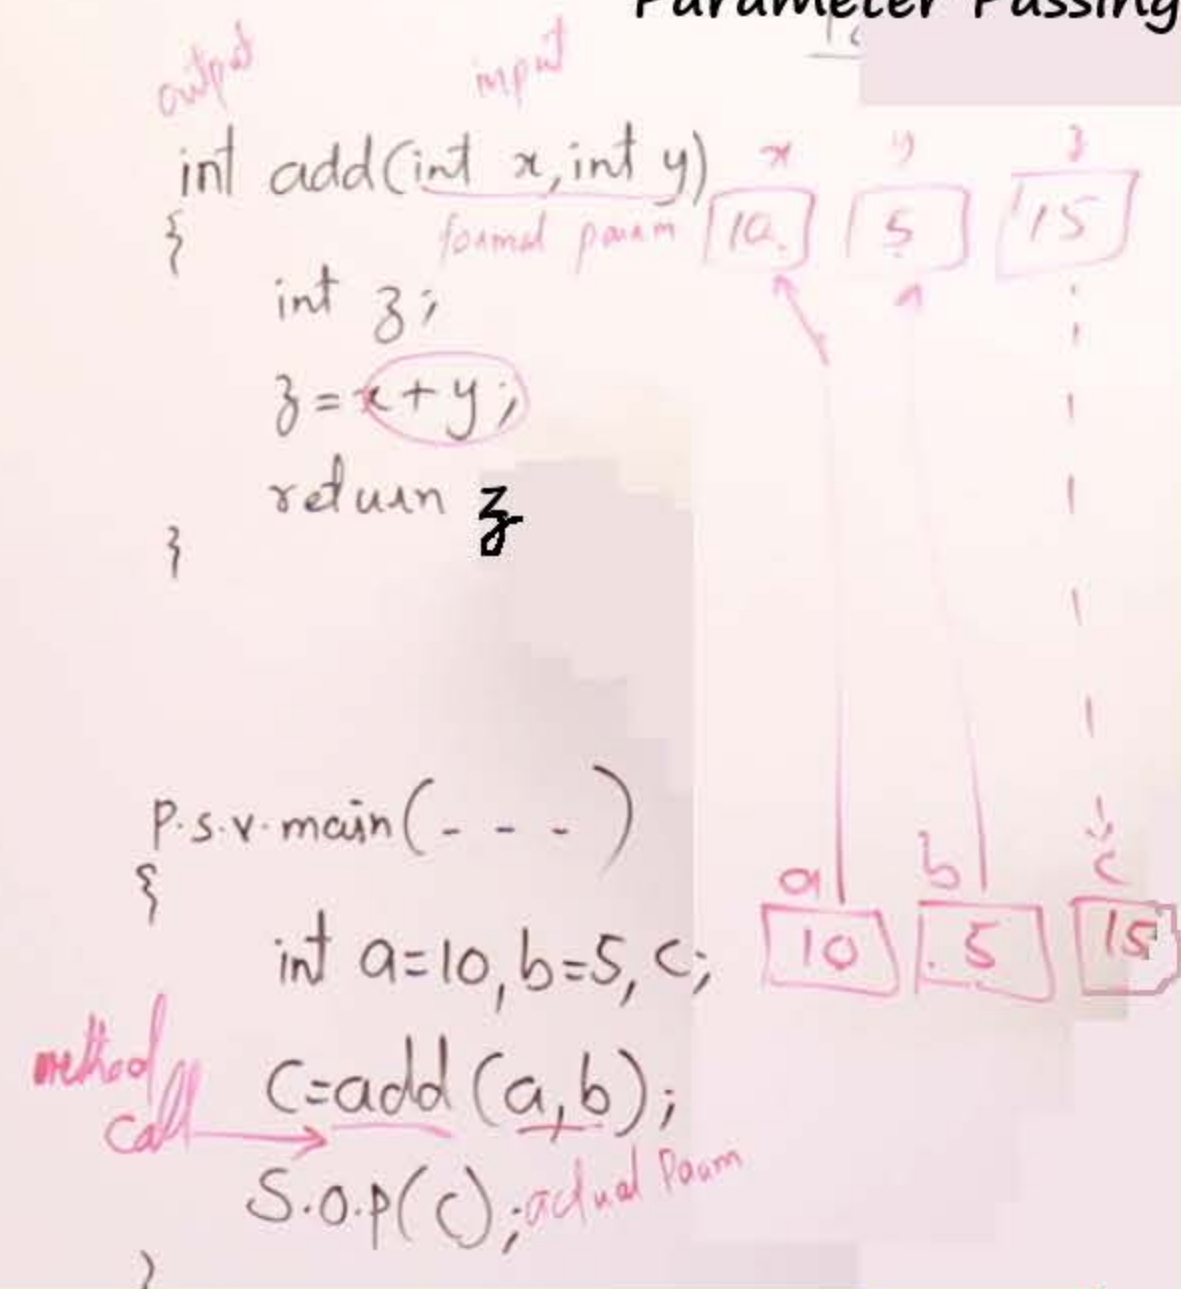 Parameter Passing
output input
int add(int x, int y) x y z
{ formal param 10 5 15
int z;
z = x+y;
return z
}
p.s.v.main(- - -)
{ a b c
int a=10, b=5, c; 10 5 15
method
call C=add(a,b);
S.O.P(c); actual Param
}